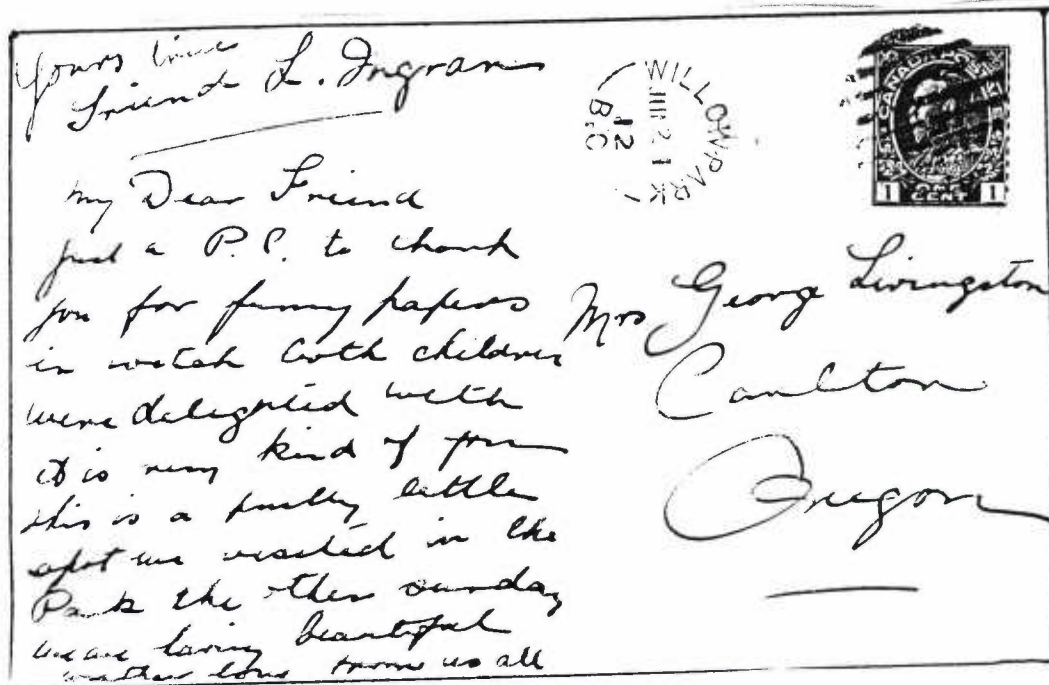 Yours true
Friend L. Ingram
My Dear Friend
just a P.C. to thank
you for funny papers
in wetch both children
were delighted with
it is very kind of you
this is a pretty little
spot we visited in the
Park the other sunday
we are having beautiful
weather love from us all
WILLOW PARK
JUN 21
12
B.C
CANADA POSTAGE
1 ONE CENT 1
Mrs George Livingston
Carlton
Oregon